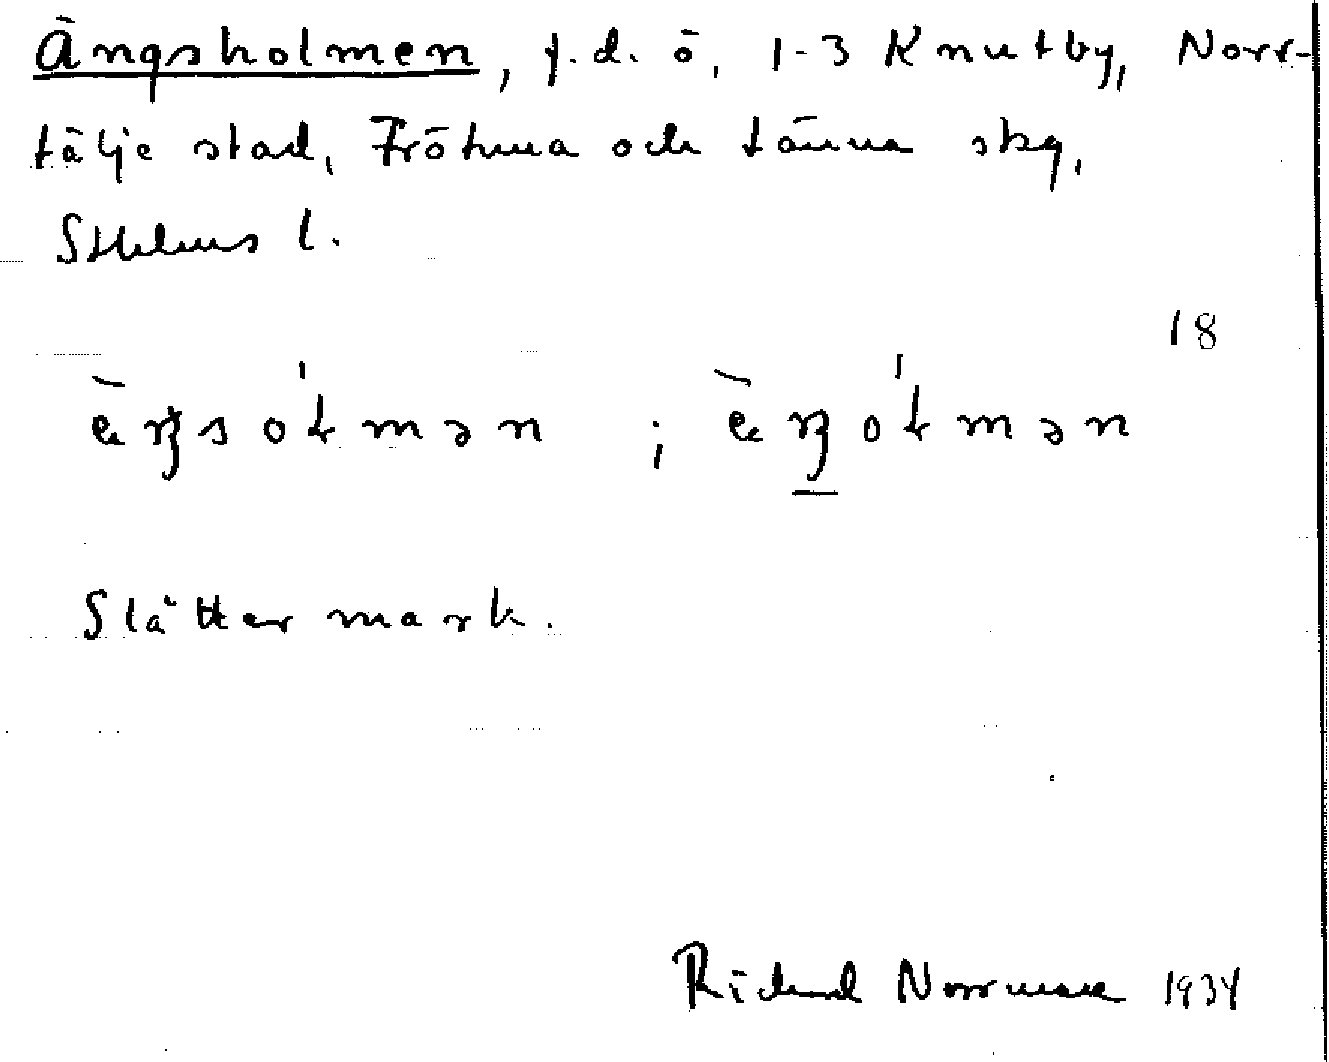 Ängsholmen, f.d. ö, 1-3 Knutby, Norr-
tälje stad, Frötuna och Länna skg,
Sthlms l.
18
ä̀ŋsoɫmən ; ä̀ŋoɫmən
Slåttermark.
Richard Norrman 1934